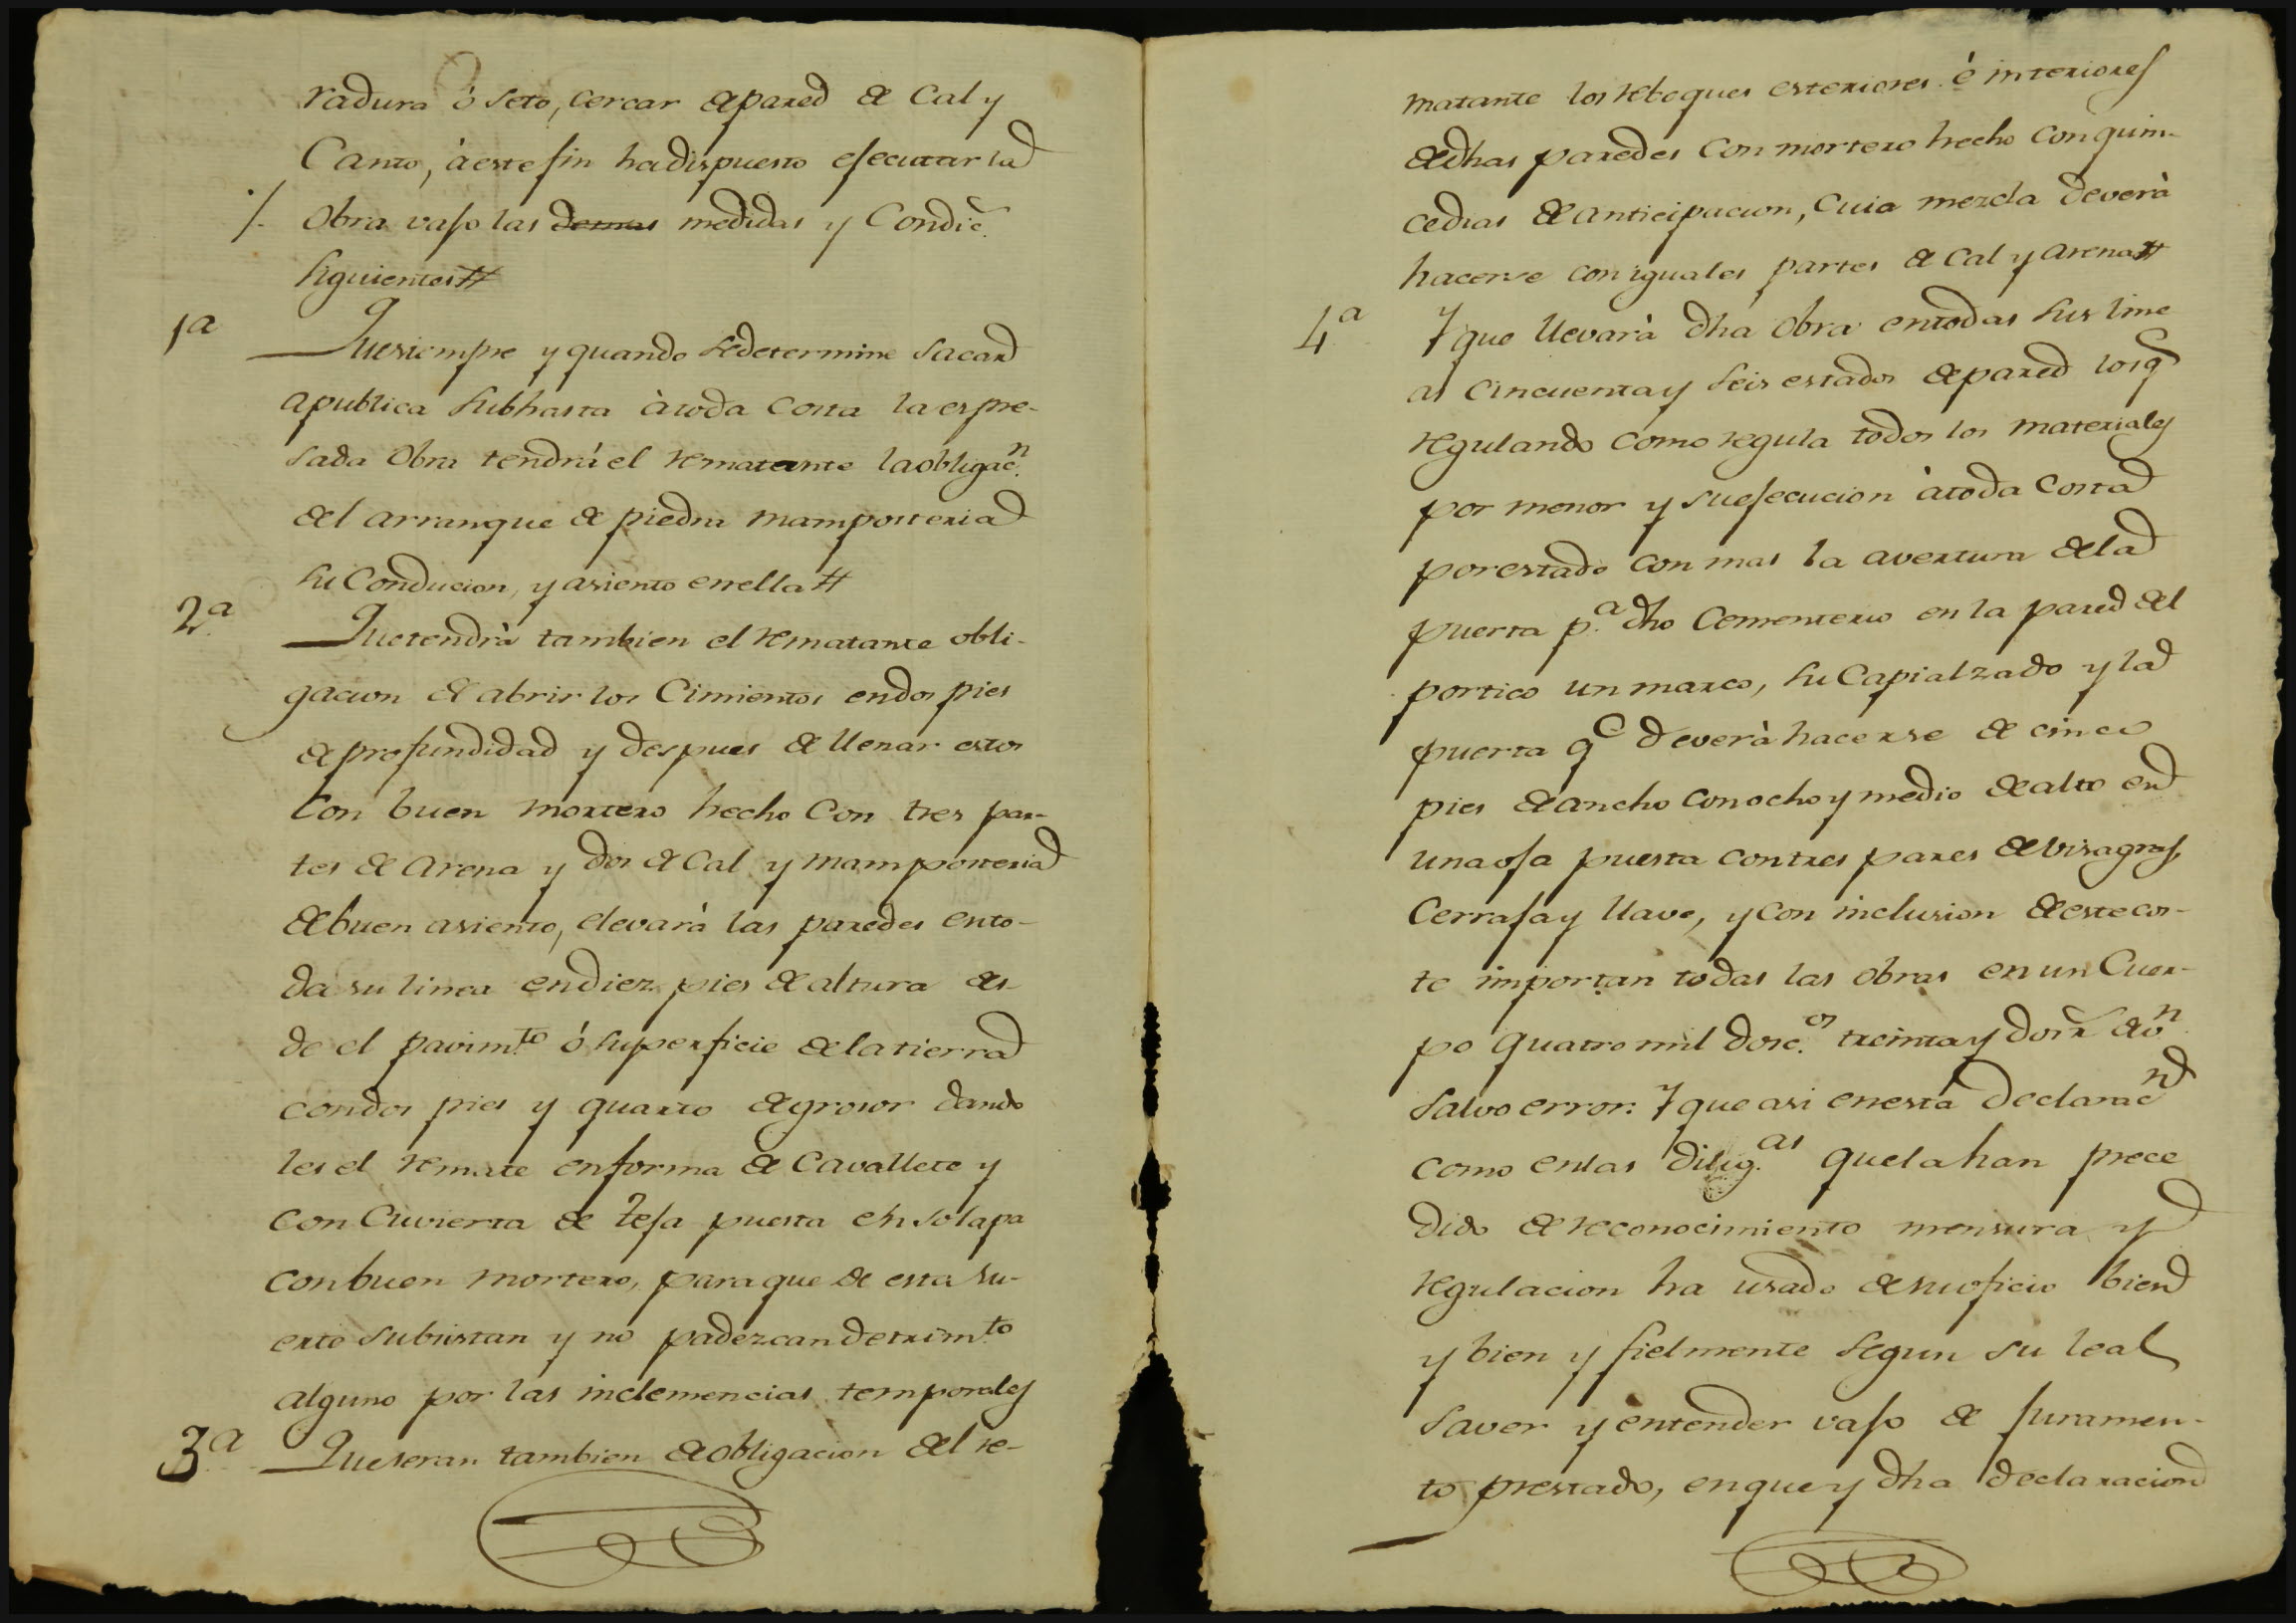 radura ó seto, cercar de pared de Cal y
Canto, à este fin ha dispuesto ejecutar la
/. Obra vajo las demas medidas y Condic.
siguientes#
1ª Que siempre y quando se determine sacar
a publica subhasta à toda Costa la espre-
sada Obra tendrá el rematante la obligac.n
del arranque de piedra mamposteria
su Conducion, y asiento en ella#
2ª Que tendrà tambien el rematante obli-
gacion de abrir los Cimientos en dos pies
de profundidad y despues de llenar estos
Con buen mortero hecho Con tres par-
tes de Arena y dos de Cal y mamposteria
de buen asiento, elevarà las paredes en to-
da su linea en diez pies de altura des-
de el pavim.to ó superficie de la tierra
con dos pies y quarto de grosor dando
les el remate en forma de Cavallete y
con Cuvierta de teja puesta en solapa
con buen mortero, para que de esta su-
erte subsistan y no padezcan detrim.to
alguno por las inclemencias temporales
3ª Que seran tambien de obligacion del re-
matante los reboques esteriores è interiores
de dhas paredes con mortero hecho con quin-
ce dias de anticipacion, Cuia mezcla deverà
hacerse con iguales partes de Cal y arena#
4ª Y que llevarà dha Obra en todas sus line
as Cincuenta y seis estados de pared los q.e
regulando como regula todos los materiales
por menor y su ejecucion à toda Costa
por estado con mas la avertura de la
puerta p.a dho Cementerio en la pared del
portico un marco, su Capialzado y la
puerta q.e deverà hacerse de cinco
pies de ancho con ocho y medio de alto en
una oja puesta con tres pares de visagras,
Cerraja y llave, y con inclusion de este cos-
te importan todas las obras en un Cuer-
po quatro mil dosc.os treinta y dos r.s de v.n
salvo error: Y que asi en esta Declarac.n
como en las dilig.as que la han prece
dido de reconocimiento mensura y
regulacion ha usado de su oficio bien
y bien y fielmente segun su leal
saver y entender vajo de juramen-
to prestado, en que y dha declaracion